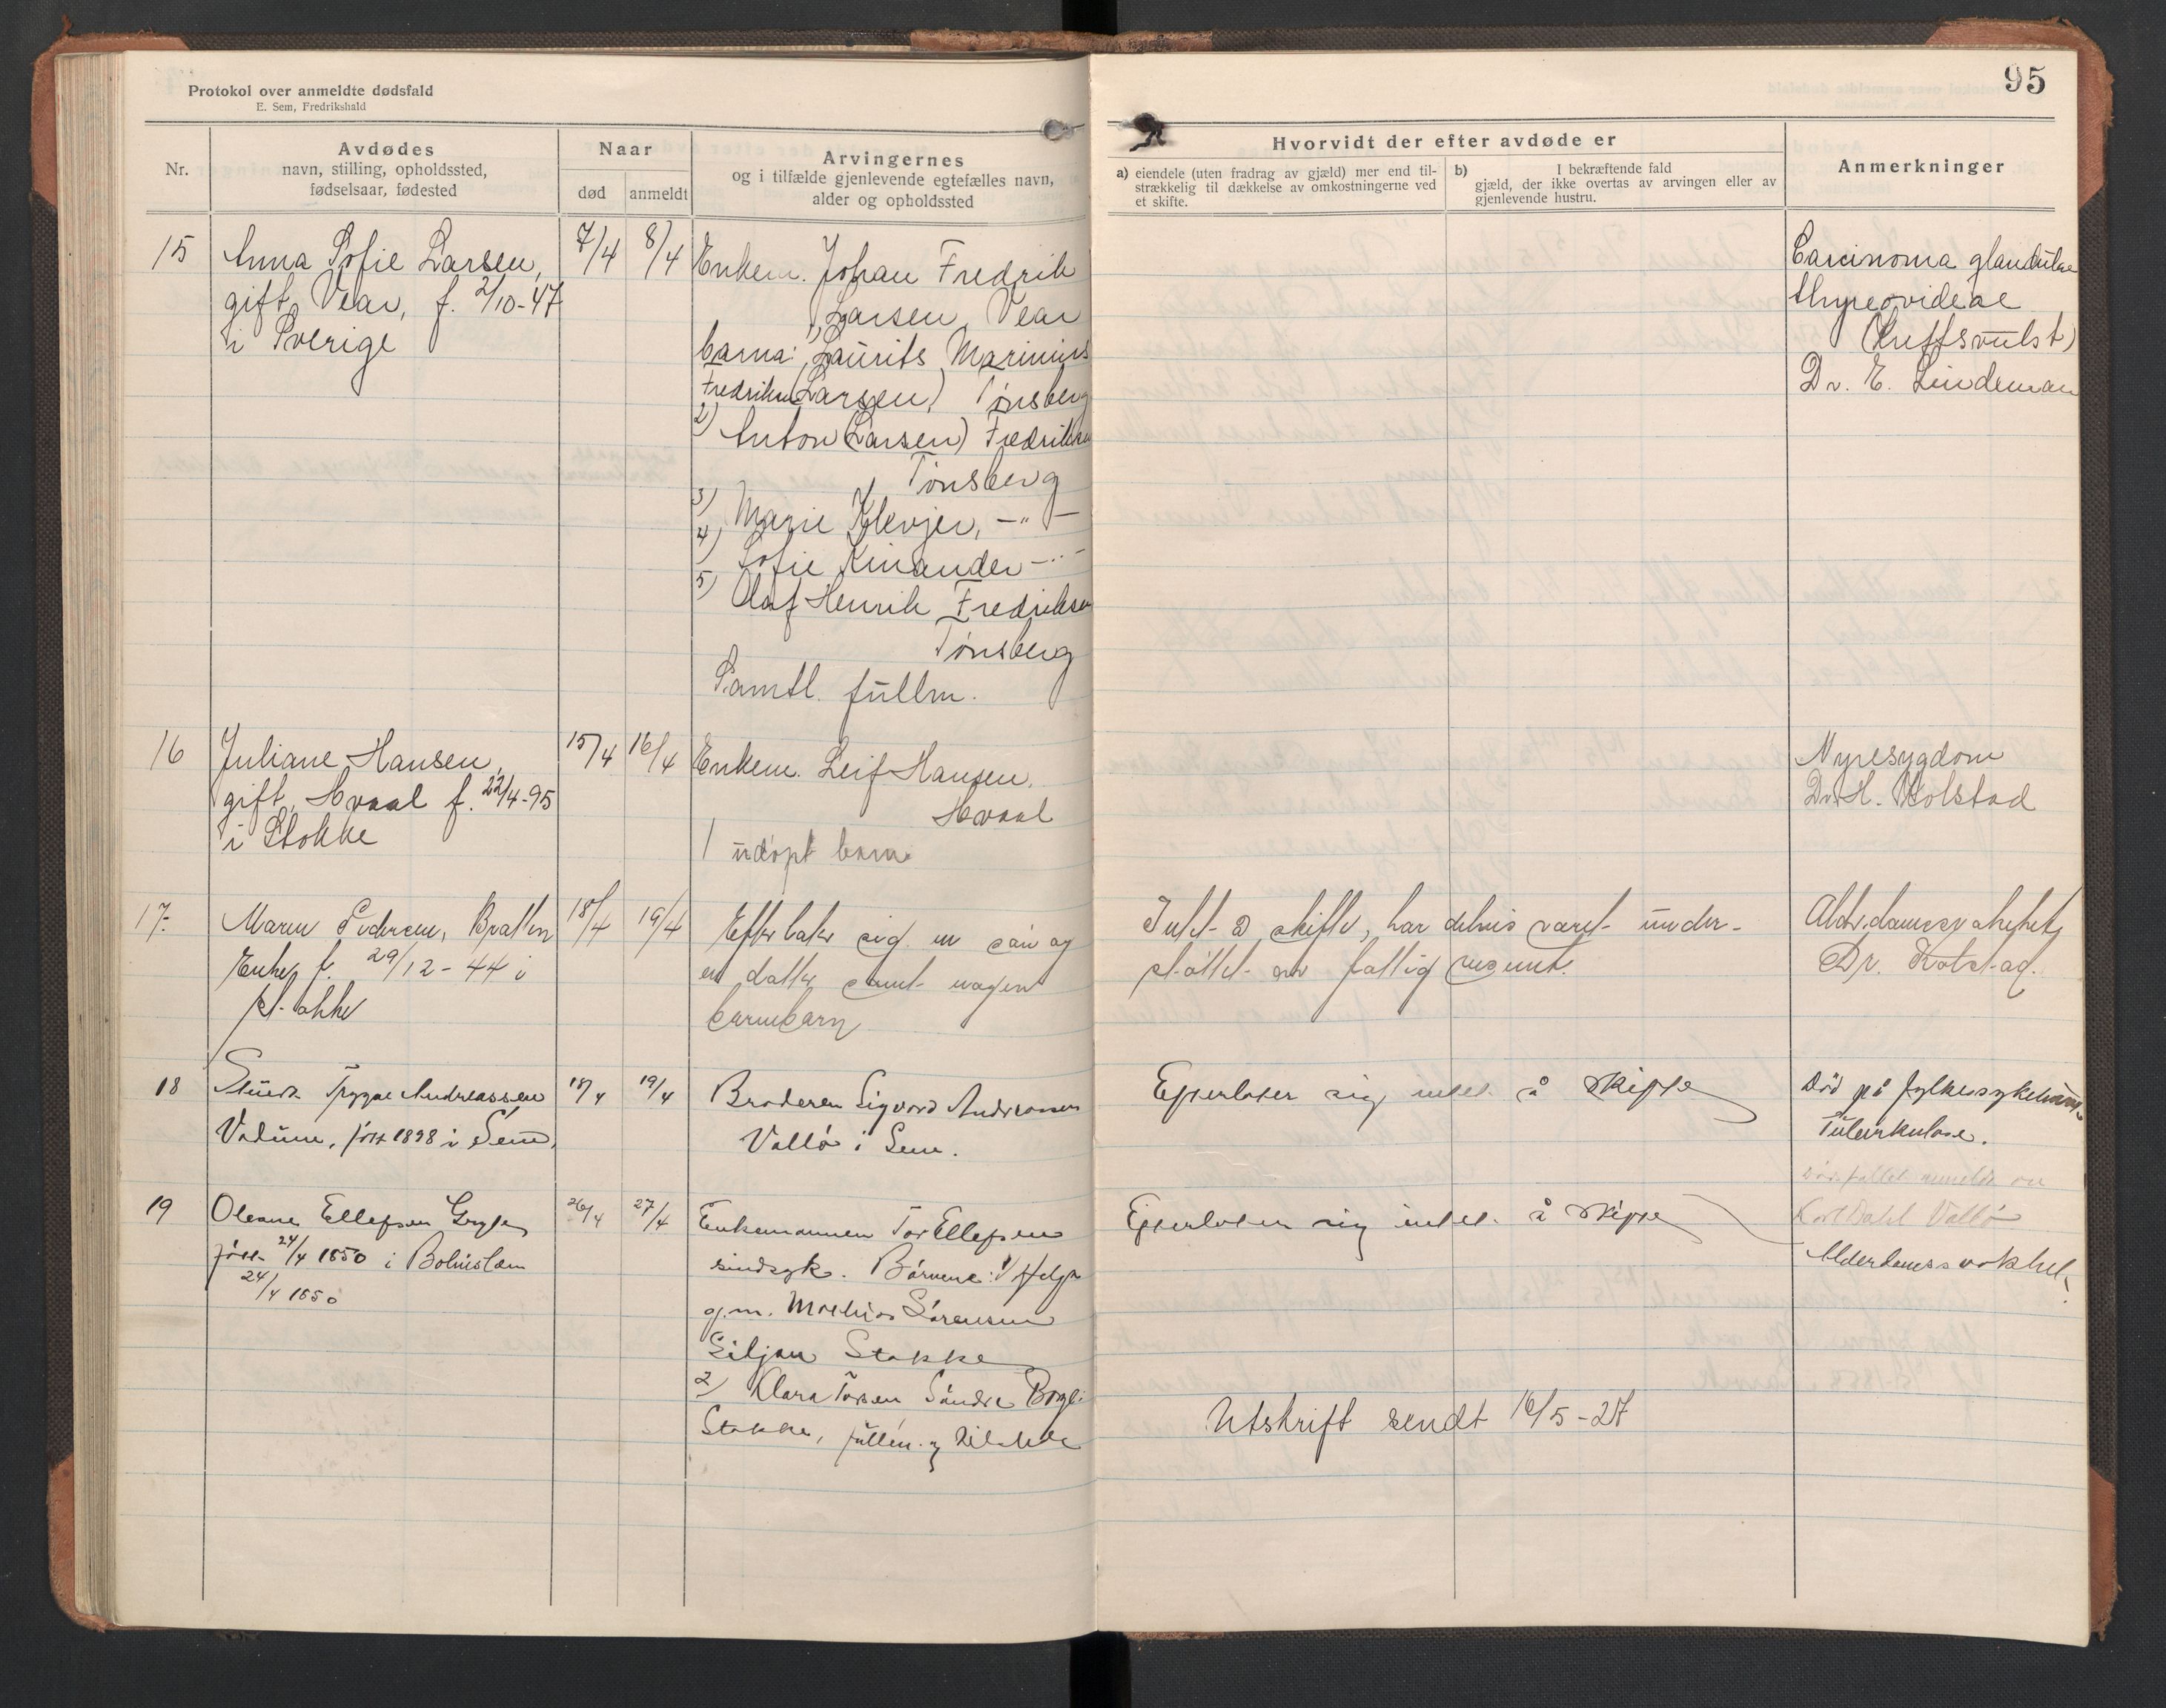 Protokol over anmeldte dødsfald
E. Sem, Fredrikshald
95
Nr.
Avdødes
navn, stilling, opholdssted,
fødselsaar, fødested
Naar
død
anmeldt
Arvingernes
og i tilfælde gjenlevende egtefælles navn,
alder og opholdssted
Hvorvidt der efter avdøde er
a) eiendele (uten fradrag av gjæld) mer end til-
strækkelig til dækkelse av omkostningerne ved
et skifte.
b) I bekræftende fald
gjæld, der ikke overtas av arvingen eller av
gjenlevende hustru.
Anmerkninger
15
Anna Sofie Larsen,
gift, Vear, f. 2/10-47
i Sverige
7/4
8/4
Enkem. Johan Fredrik
Larsen, Vear
barna: 1) Laurits Marinius
Fredriksen (Larsen), Tønsberg
2) Anton (Larsen) Fredriksen
Tønsberg
3) Marie Klevjer, -"-
4) Sofie Kinander -"-
5) Olaf Henrik Fredriksen
Tønsberg
Samtl. fullm.
Carcinoma glandulae
thyreoideae
(Kreftsvulst)
Dr. E. Lindeman
16
Juliane Hansen,
gift, Hvaal f. 22/4-95
i Stokke
15/4
16/4
Enkem. Leif Hansen.
Hvaal
1 adopt barn.
Nyresygdom
Dr. H. Kolstad
17.
Maren Pedersen, Bratten
Enke, f. 29/12-44 i
Stokke
18/4
19/4
Efterlater sig en søn og
en datter samt nogen
barnebarn
Intet å skifte, har delvis været under-
støttet av fattigvesenet.
Alderdomssvakhet
Dr. Kolstad.
18
Trygve Andreassen
født 1898 i Sem,
18/4
19/4
Broderen Sigvard Andreassen
Vallø i Sem.
Efterlater sig intet å skifte
Død på fylkessykehuset
Tuberkulose.
Dødsfallet anmeldt av
Karl Dahl Vallø
19
Oleane Ellefsen
født 24/4 1850 i
24/4 1850
26/4
27/4
Enkemannen Tor Ellefsen
sindsyk. Børnene: 1) Helga
g.m. Mathias Sørensen
Stokke
2) Klara Torsen Søndre
Stokke, fullm. og
Efterlater sig intet å skifte
Alderdomssvakhet.
Utskrift sendt 16/5-27